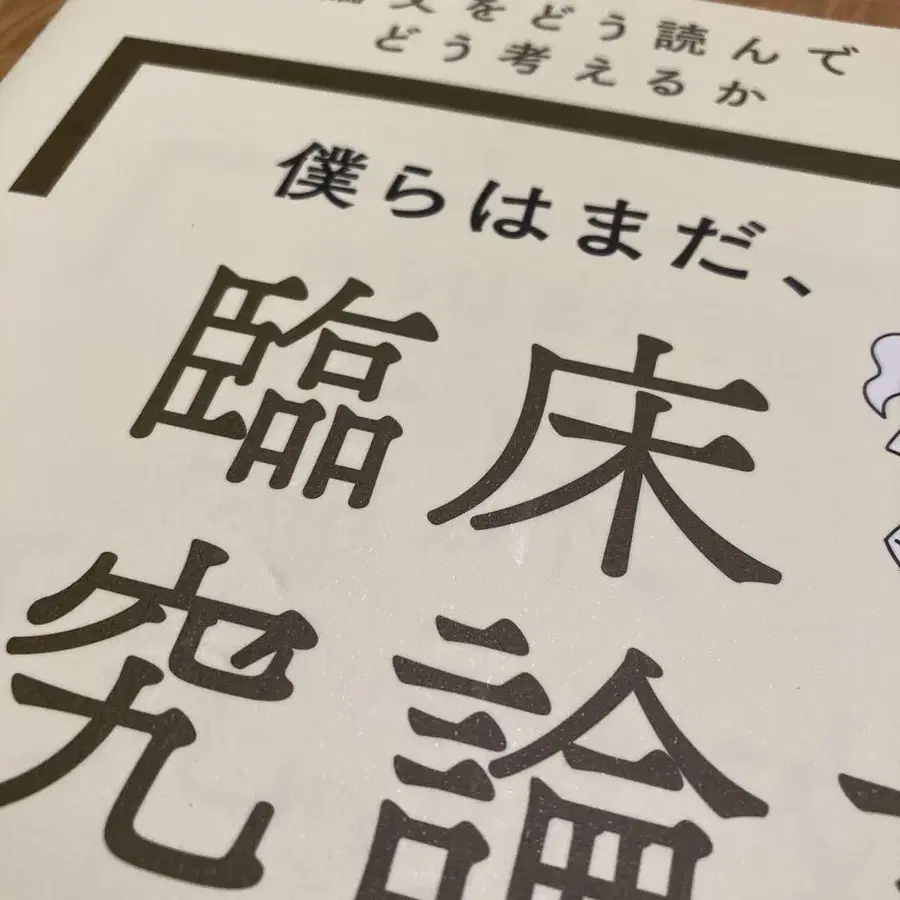 論文をどう読んで
どう考えるか
僕らはまだ、
臨床
究論